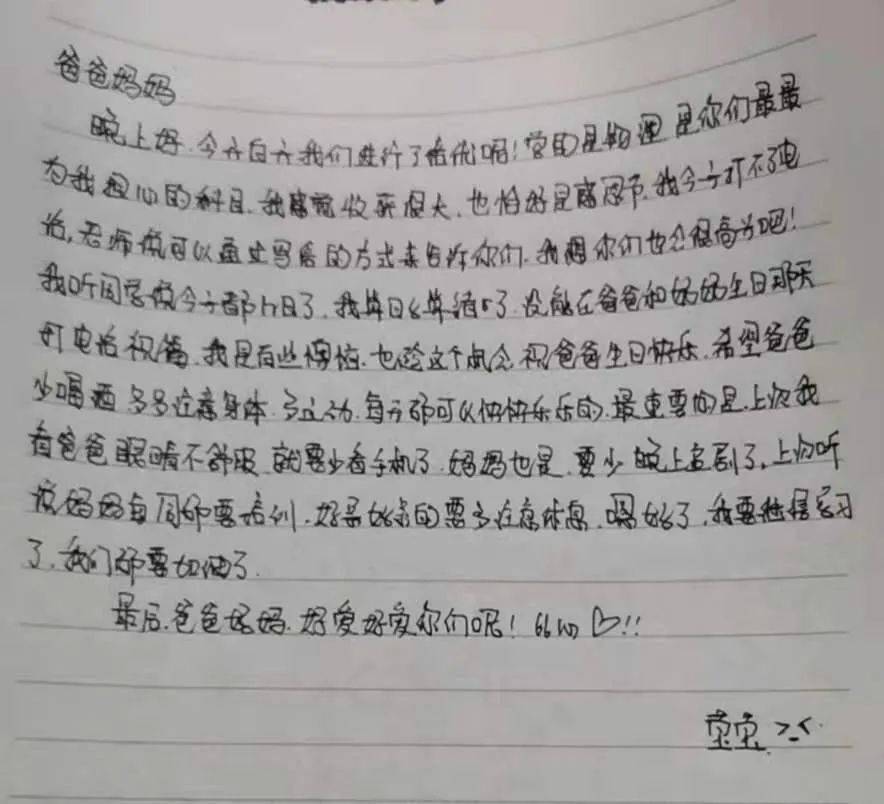 爸爸妈妈
晚上好.今天白天我们进行了培优呢!学的是物理 是你们最最
为我担心的科目.我感觉收获很大.也恰好是感恩节.我今天打不了电
话,老师说可以通过写信的方式来告诉你们.我想你们也会很高兴吧!
我听同学说今天都几日了.我算日子算错了.没能在爸爸和妈妈生日那天
打电话祝福.我是有些懊恼.也趁这个机会.祝爸爸生日快乐.希望爸爸
少喝酒 多多注意身体.多运动.每天都可以快快乐乐的.最重要的是.上次我
看爸爸眼睛不舒服 就要少看手机了.妈妈也是.要少晚上追剧了,上次听
说妈妈每周都要培训.好辛苦的要多注意休息.嗯好了.我要继续学习
了.我们都要加油了.
最后.爸爸妈妈.好爱好爱你们呢!
>.<.